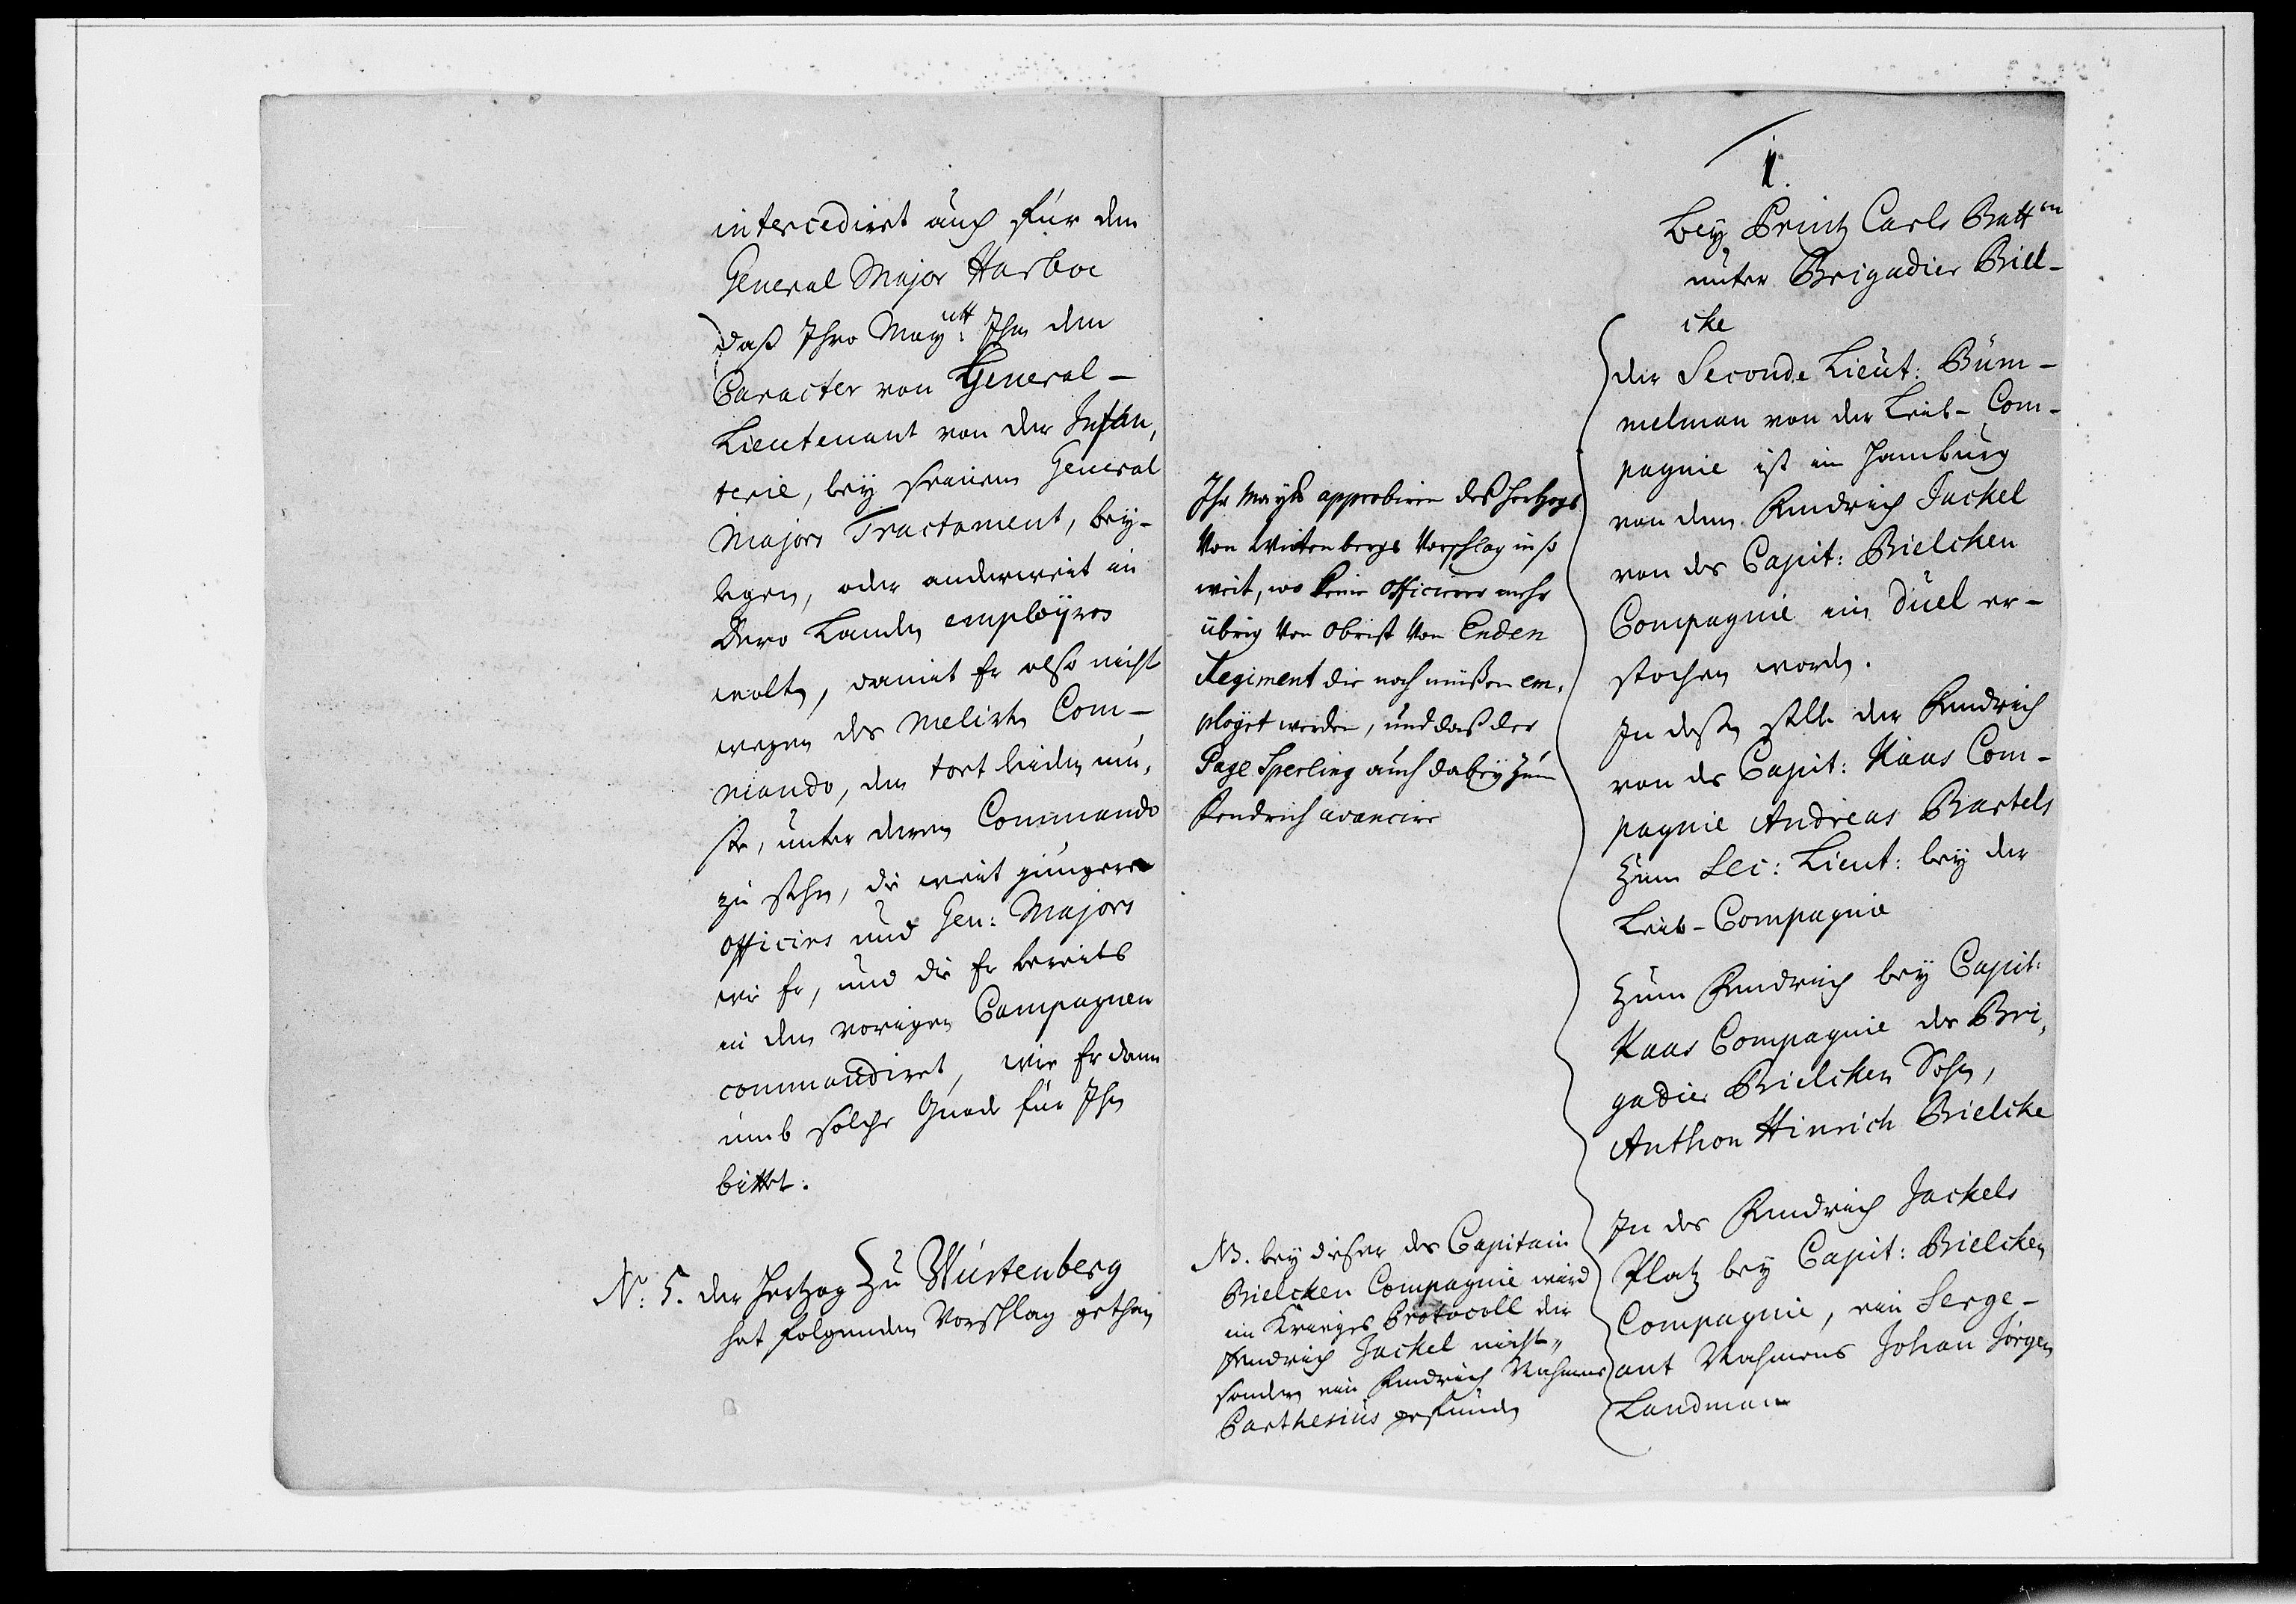 intercedirt auch für den
General Major Harboe
daß Ihro Maytt: Ihm den
Caracter von General-
Lieutenant von der Infan,
terie, bey seinem General
Majors Tractament, bey-
legen, oder anderweit in
Dero Landen employren
wolten, damit Er also nicht
wegen des melirten Com-
mando, den tort leiden mü,
ste, unter deren Commando
zu stehn, die weit jüngere
Officirs und Gen: Majors
wie Er, und die Er bereits
in den vorigen Campagnen
commandiret, wie Er dann
umb solche Gnade für Ihn
bittet.
No: 5. der Hertzog Zu Würtenberg
hat folgenden Vorschlag gethan
Ihr Maytt approbiren des Hertzogs
Von Wirtenbergs Vorschlag in so
weit, wo keine Officirer mehr
übrig Von Obrist Von Enden
Regiment die noch müßen em,
ployet werden, und daß der
Page Sperling auch dabey zum
Fendrich avancire
NB. bey dieser des Capitain
Bielcken Compagnie wird
im Krieges Protocoll der
Fendrich Jackel nicht,
sondern ein Fendrich Nahmens
Carthesius gefunden
1.
bey Printz Carls Batton
unter Brigadier Biel-
cke
der Seconde Lieut: Büm-
melman von der Leib-Com-
pagnie ist in Hamburg
von dem Fendrich Jackel
von des Capit: Bielcken
Compagnie im Duel er-
stochen worden.
In deßen stelle der Fendrich
von des Capit: Kaas Com-
pagnie Andreas Bartels
zum Sec: Lieut: bey der
Leib-Compagnie
Zum Fendrich bey Capit:
Kaas Compagnie des Bri,
gadier Bielcken Sohn,
Anthon Hinrich Bielcke
In des Fendrich Jackels
Platz bey Capit: Bielcken
Compagnie, ein Serge-
ant Nahmens Johan Jörgen
Landman